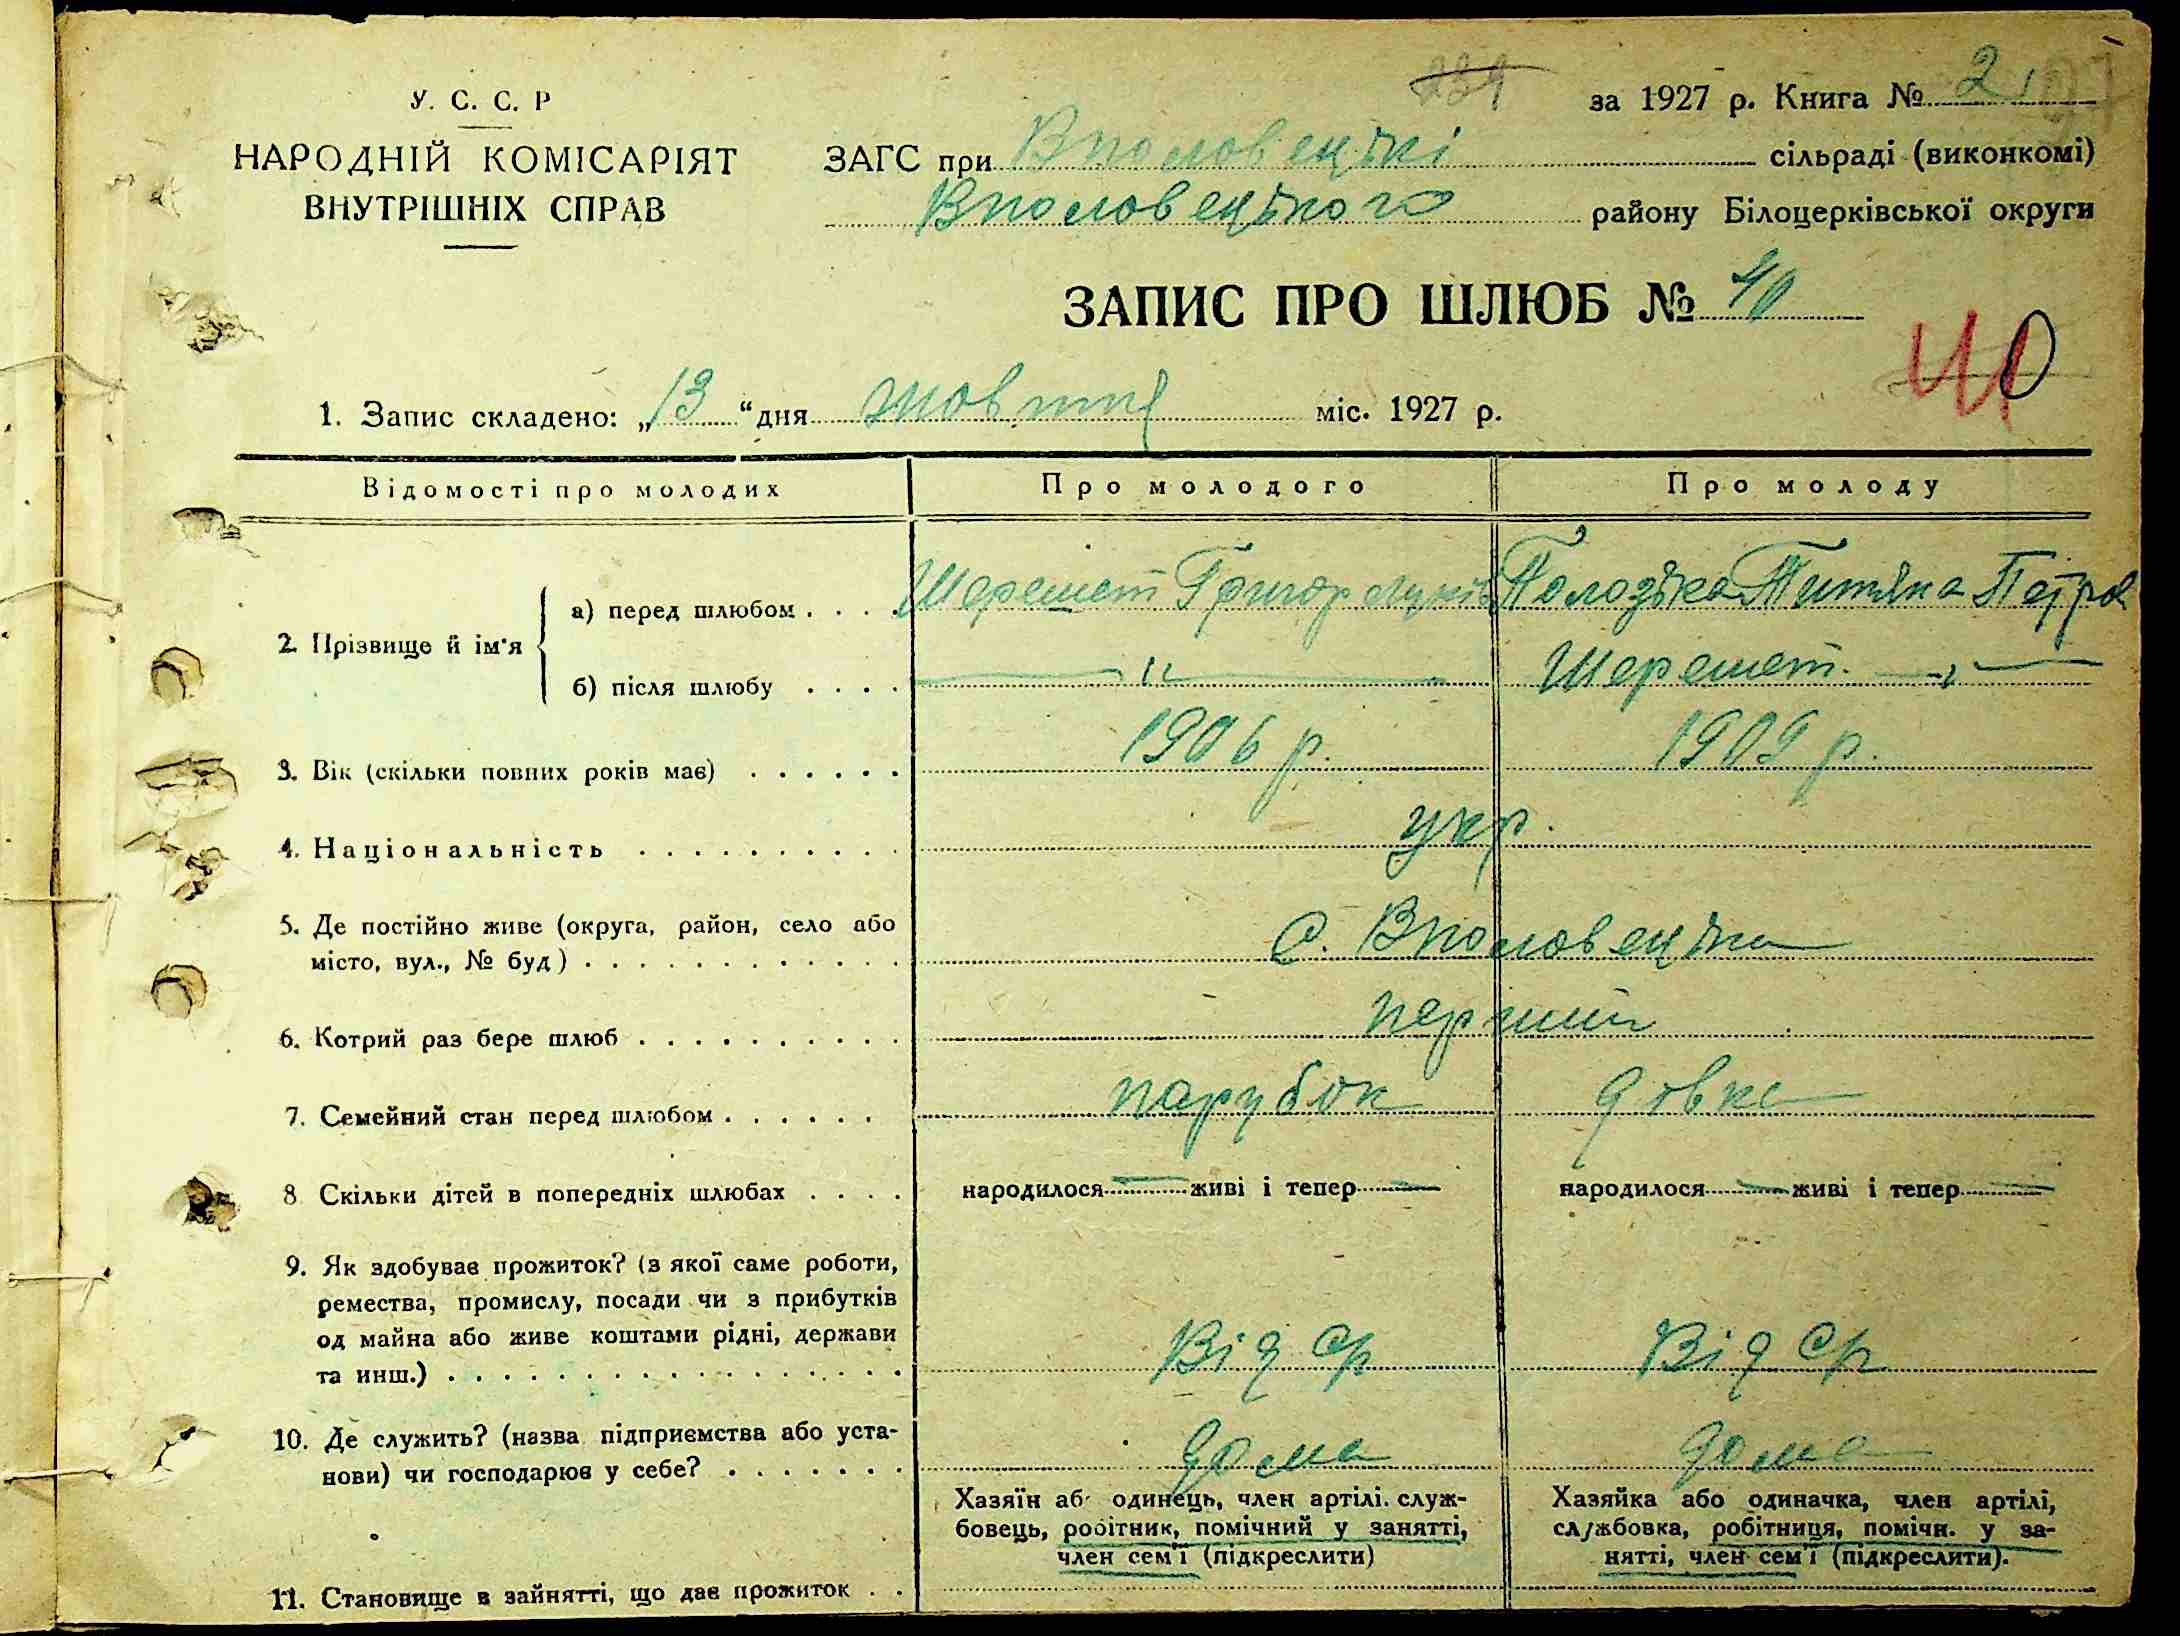 У. С. С. Р
НАРОДНІЙ КОМІСАРІЯТ
ВНУТРІШНІХ СПРАВ
239
за 1927 р. Книга № 2
ЗАГС при Вполовецькі сільраді (виконкомі)
Вполовецького району Білоцерківської округи
ЗАПИС ПРО ШЛЮБ № 40
40
1. Запис складено: „13“ дня жовтня міс. 1927 р.
Відомості про молодих
Про молодого
Про молоду
2. Прізвище й ім'я
а) перед шлюбом . . . . Шеремет Григор Луків Тетяна Петров
б) після шлюбу . . . . — „ — Шеремет. — „ —
3. Вік (скільки повних років має) . . . . . . 1906 р. 1909 р.
4. Національність . . . . . . . . . . укр.
5. Де постійно живе (округа, район, село або
місто, вул., № буд) . . . . . . . . . . . . с. Вполовецька
6. Котрий раз бере шлюб . . . . . . . . . . перший
7. Семейний стан перед шлюбом . . . . . . парубок дівка
8. Скільки дітей в попередніх шлюбах . . . . народилося — живі і тепер — народилося — живі і тепер —
9. Як здобуває прожиток? (з якої саме роботи,
ремества, промислу, посади чи з прибутків
од майна або живе коштами рідні, держави
та инш.) . . . . . . . . . . . . . . . . . Від ср Від ср
10. Де служить? (назва підприємства або уста-
нови) чи господарює у себе? . . . . . . . дома дома
Хазяїн аб одинець, член артілі. служ-
бовець, робітник, помічний у занятті,
член сем'ї (підкреслити)
Хазяйка або одиначка, член артілі,
службовка, робітниця, помічн. у за-
нятті, член сем'ї (підкреслити).
11. Становище в зайнятті, що дає прожиток . .